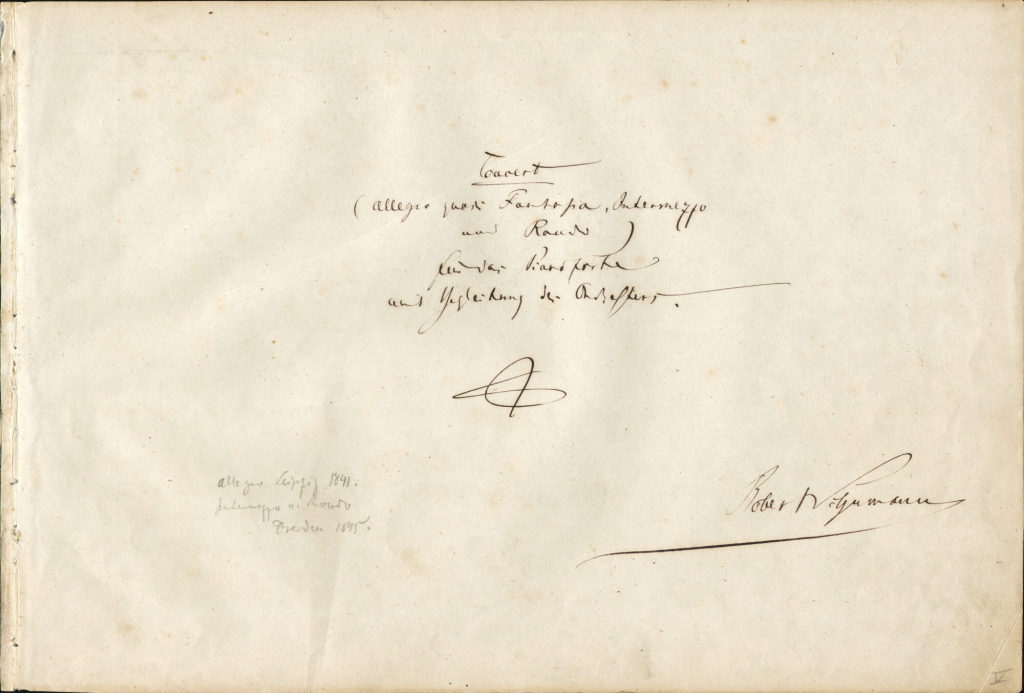 Concert
(Allegro quasi Fantasia, Intermezzo
und Rondo)
für das Pianoforte
mit Begleitung des Orchesters.
Allegro Leipzig 1841.
Intermezzo u. Rondo
Dresden 1845.
Robert Schumann
V